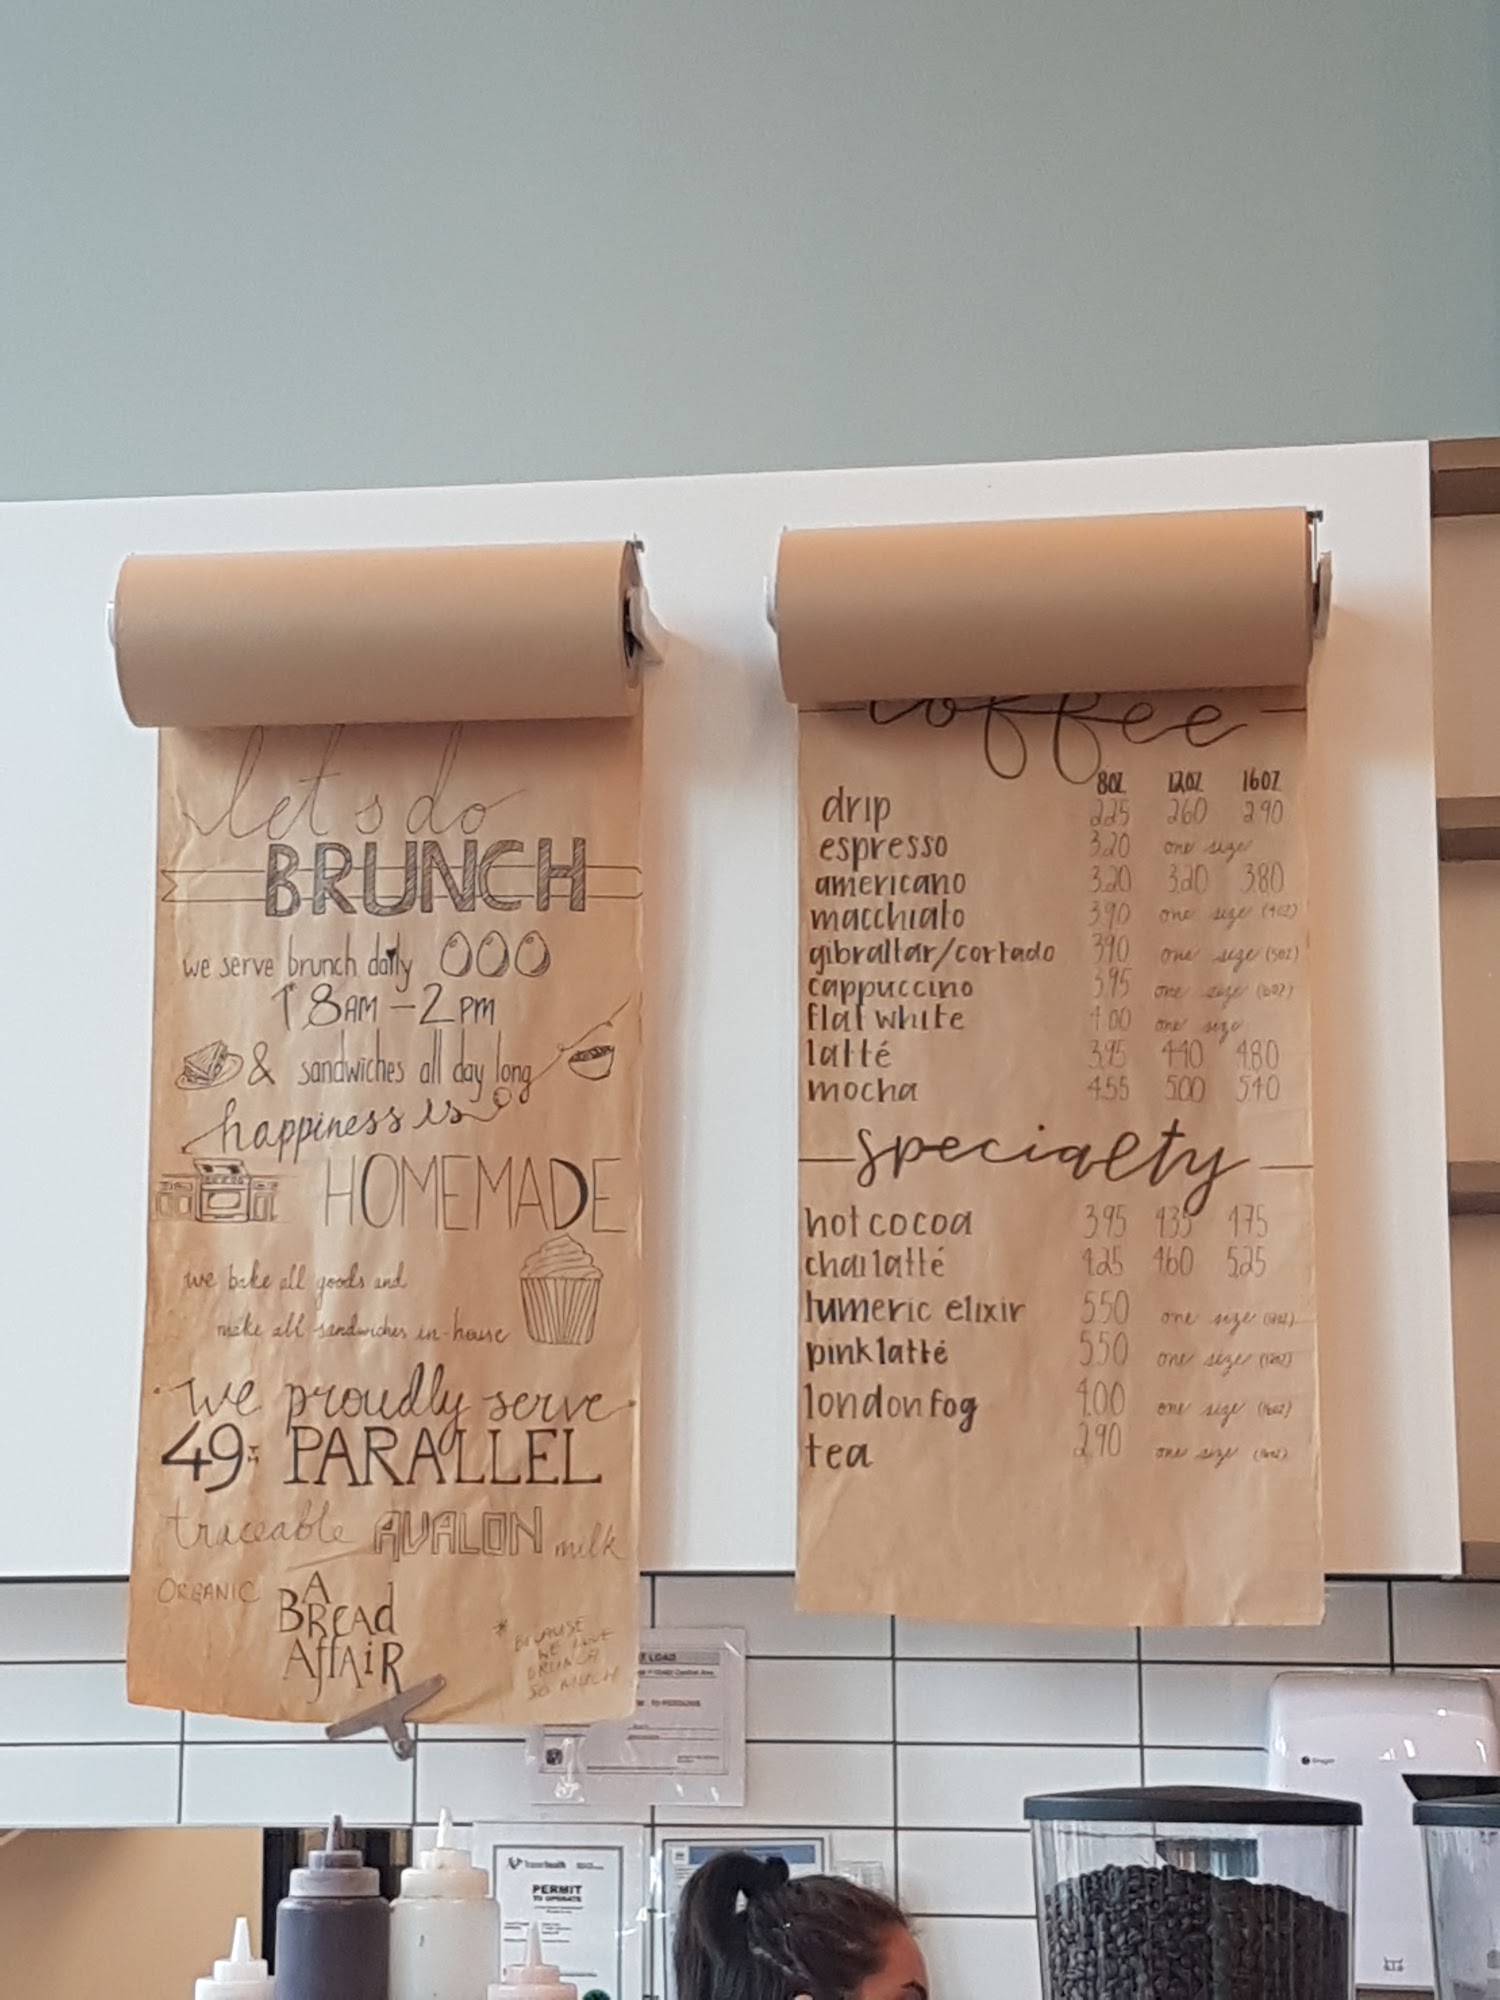 let's do
BRUNCH
we serve brunch daily
8AM – 2PM
& sandwiches all day long
happiness is
HOMEMADE
we bake all goods and
make all sandwiches in-house
we proudly serve
49TH PARALLEL
traceable AVALON milk
ORGANIC
A
BREAd
AffAiR
* BECAUSE
WE LOVE
BRUNCH
SO MUCH
coffee
8OZ 12OZ 16OZ
drip 2.25 2.60 2.90
espresso 3.20 one size
americano 3.20 3.20 3.80
macchiato 3.90 one size (4oz)
gibraltar/cortado 3.90 one size (5oz)
cappuccino 3.95 one size (6oz)
flat white 4.00 one size
latté 3.95 4.40 4.80
mocha 4.55 5.00 5.40
specialty
hot cocoa 3.95 4.35 4.75
chai latté 4.25 4.60 5.25
tumeric elixir 5.50 one size
pink latté 5.50 one size (12oz)
london fog 4.00 one size (16oz)
tea 2.90 one size (16oz)
T LOAD
PERMIT
TO OPERATE